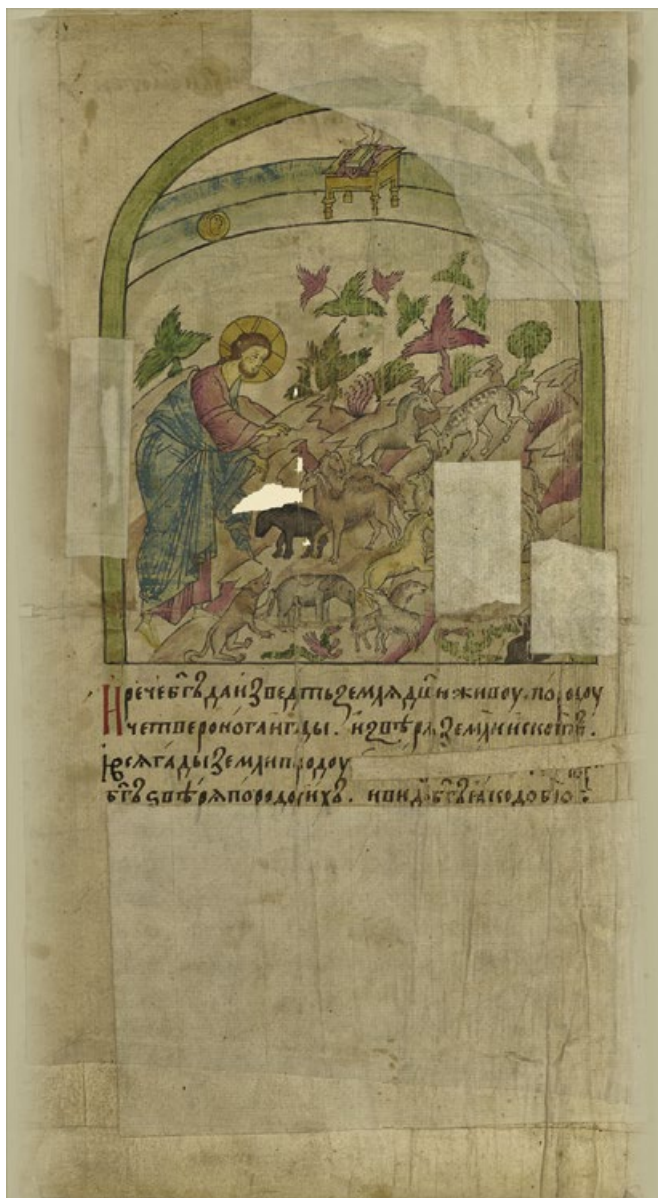 И речебг҃ъдаизведтьземлядш҃ꙋживоу. породоу
четвероногаигады. извѣряземлнїи
ивсягадыземлипородоу
бг҃ъѕвѣряпородоуихъ. ивидѣбг҃ъꙗкодобро